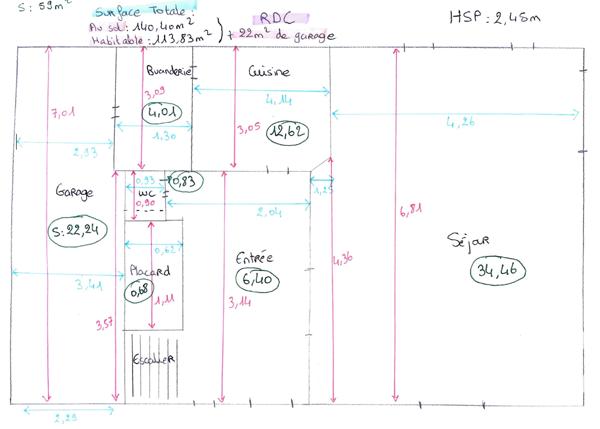 S: 59m²
Surface Totale:
Au sol: 140,40m²
Habitable: 113,83m²
+ 22m² de garage
RDC
HSP: 2,45m
Buanderie
Cuisine
3,09
4,01
1,30
4,14
3,05
12,62
4,26
7,01
2,93
0,93
0,83
WC
0,90
2,04
1,25
6,81
Garage
S: 22,24
0,62
Entrée
6,40
4,36
Séjour
34,46
Placard
0,68
1,11
3,41
3,14
3,57
Escalier
2,29